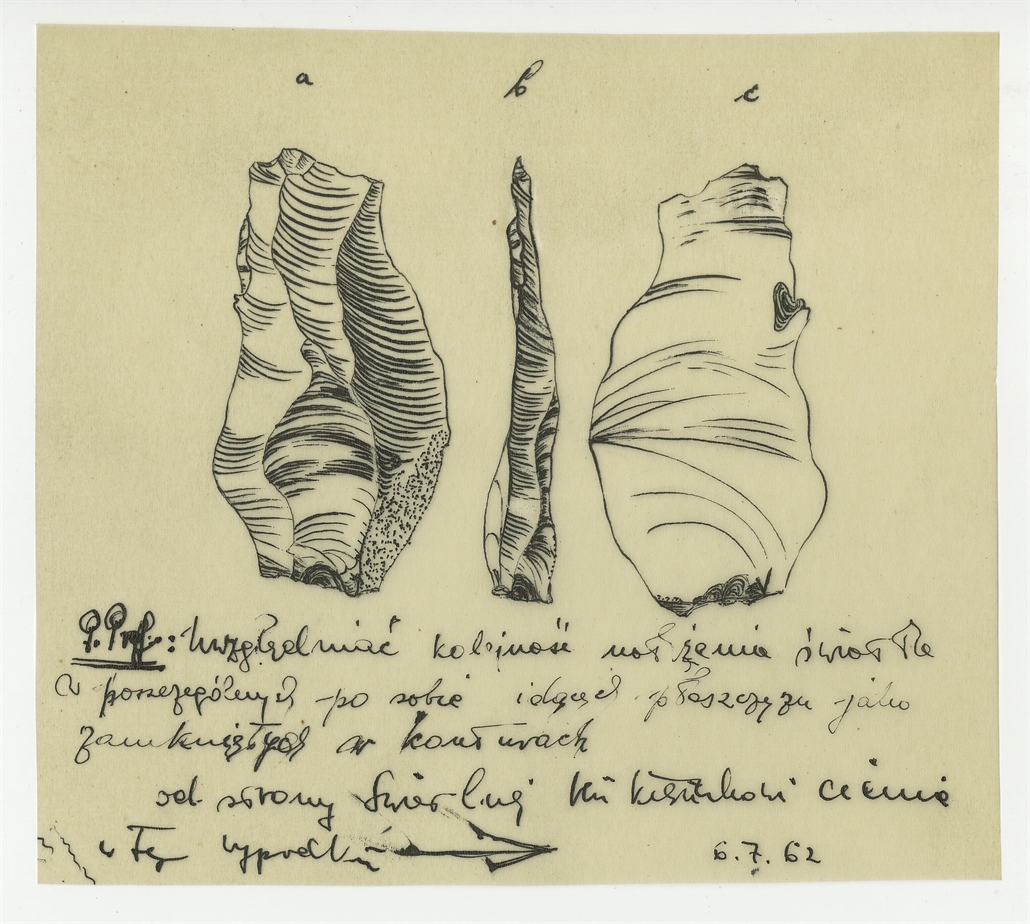 a b c
P. Prof.: Uwzględniać kolejność natężenia światła
w poszczególnych po sobie idących płaszczyzn jako
zamkniętych w konturach
od strony świetlnej ku kierunkowi cienia
w tym wypadku
6.7.62